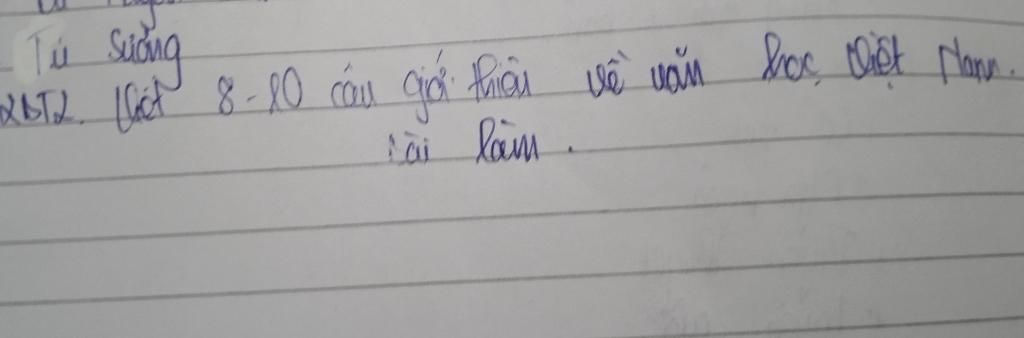 Tú Sương
BT2. Viết 8-10 câu giới thiệu về văn học Việt Nam.
Bài làm.